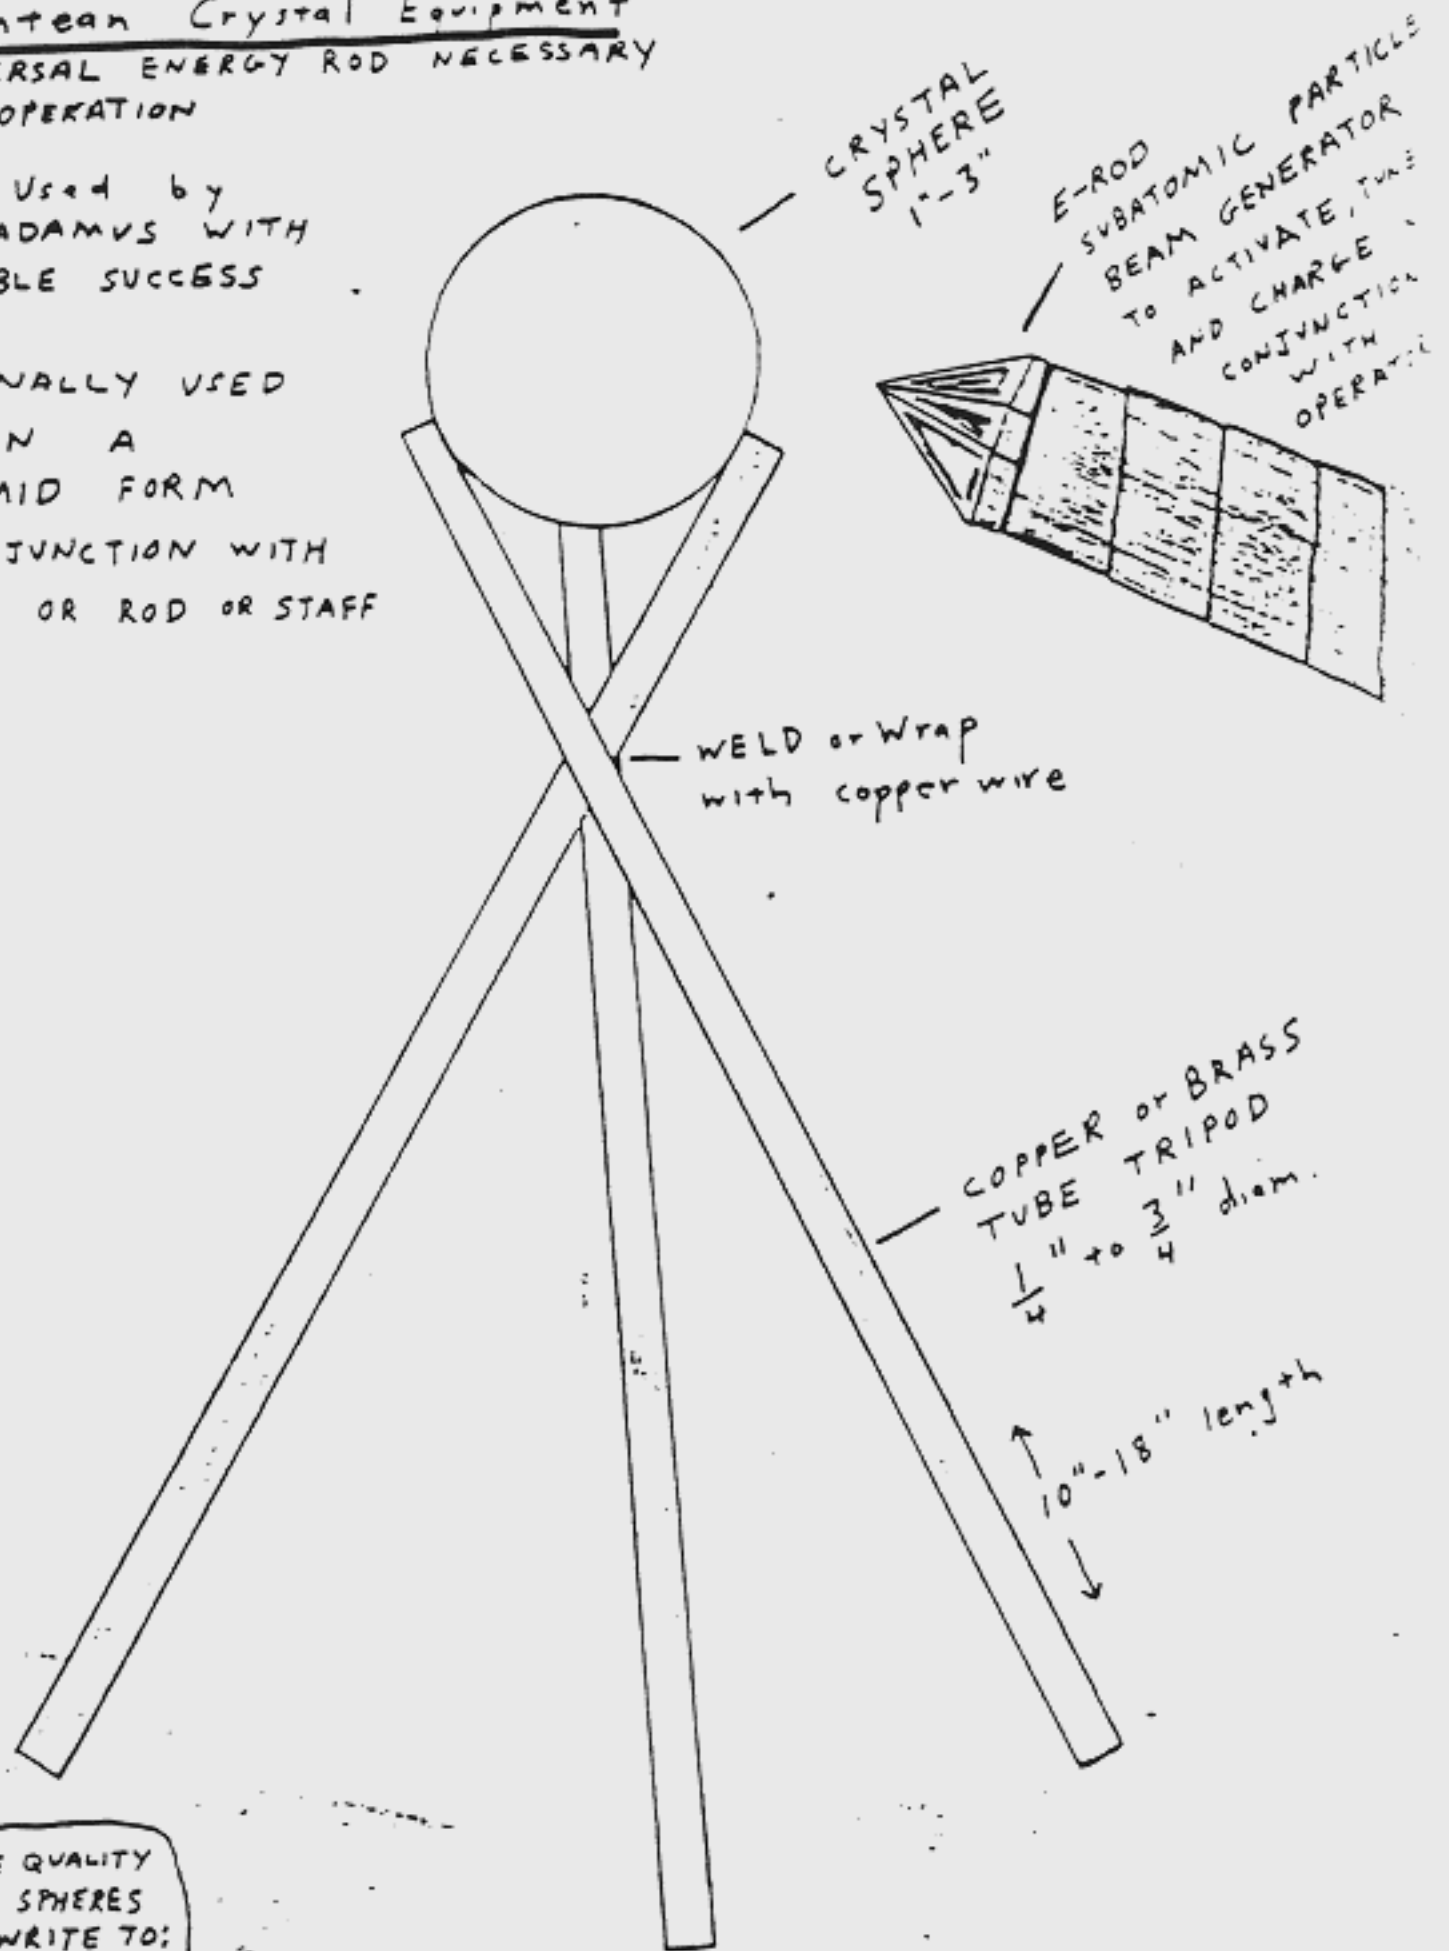 ntean Crystal Equipment
ERSAL ENERGY ROD NECESSARY
OPERATION
Used by
ADAMUS WITH
BLE SUCCESS
NALLY USED
N A
MID FORM
JUNCTION WITH
OR ROD OR STAFF
CRYSTAL
SPHERE
1"-3"
E-ROD
SUBATOMIC PARTICLE
BEAM GENERATOR
TO ACTIVATE, TUNE
AND CHARGE
CONJUNCTION
WITH
WELD or Wrap
with copper wire
COPPER or BRASS
TUBE TRIPOD
1/4" to 3/4" diam.
10"-18" length
E QUALITY
SPHERES
WRITE TO: